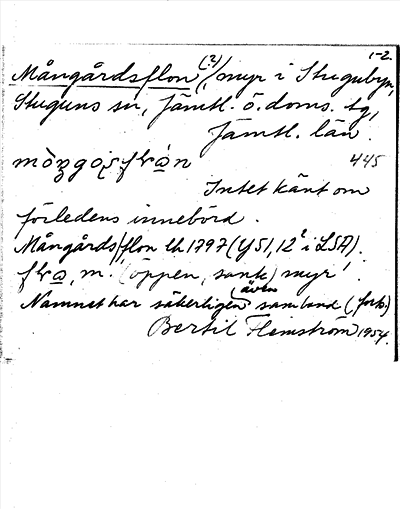 1-2.
Mångårdsflon (?), myr i Stugubyn,
Stuguns sn, Jämtl. ö. doms. tg,
Jämtl. län.
445
Intet känt om
förledens innebörd.
Mångårds/flon lh 1797 (Y51, 12 i LSA).
m. (öppen, sank) myr'.
Namnet har säkerligen även samband (forts)
Bertil Flemström 1954.